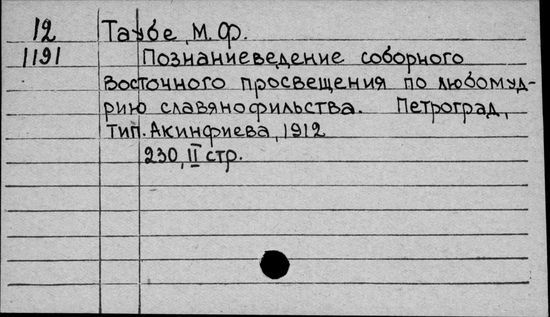 12 Таубе, М. Ф.
1191 Познаниеведение соборного
Восточного просвещения по любомуд-
рию славянофильства. Петроград,
тип. Акинфиева, 1912
230, II стр.